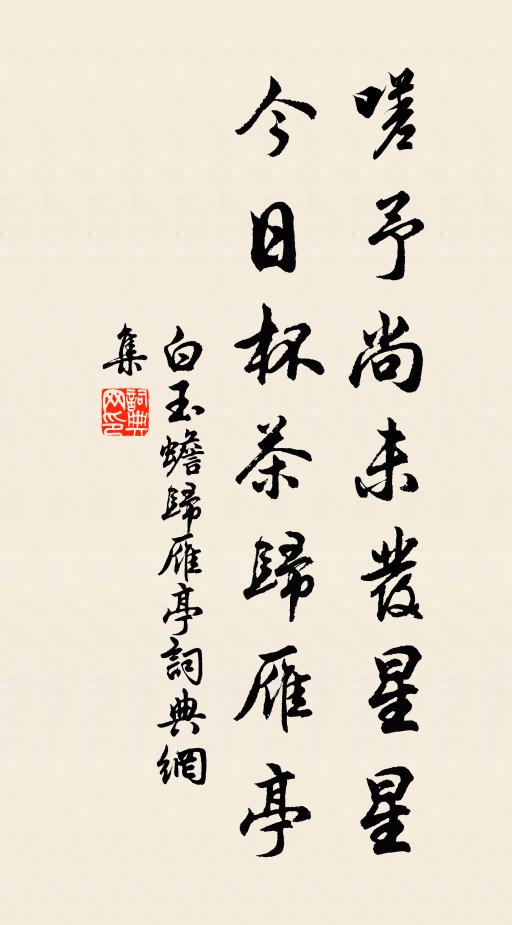 嗟予尚未發星星
今日杯茶歸雁亭
白玉蟾歸雁亭詞典網
集
詞典
网印